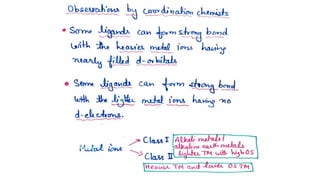 Observations by coordination chemists
• Some ligands can form strong bond
with the heavier metal ions having
nearly filled d-orbitals
• Some ligands can form strong bond
with the lighter metal ions having no
d-electrons.
Metal ions
Class I
Alkali metals/
alkaline earth metals
lighter TM with high OS
Class II
Heavier TM and lower OS TM